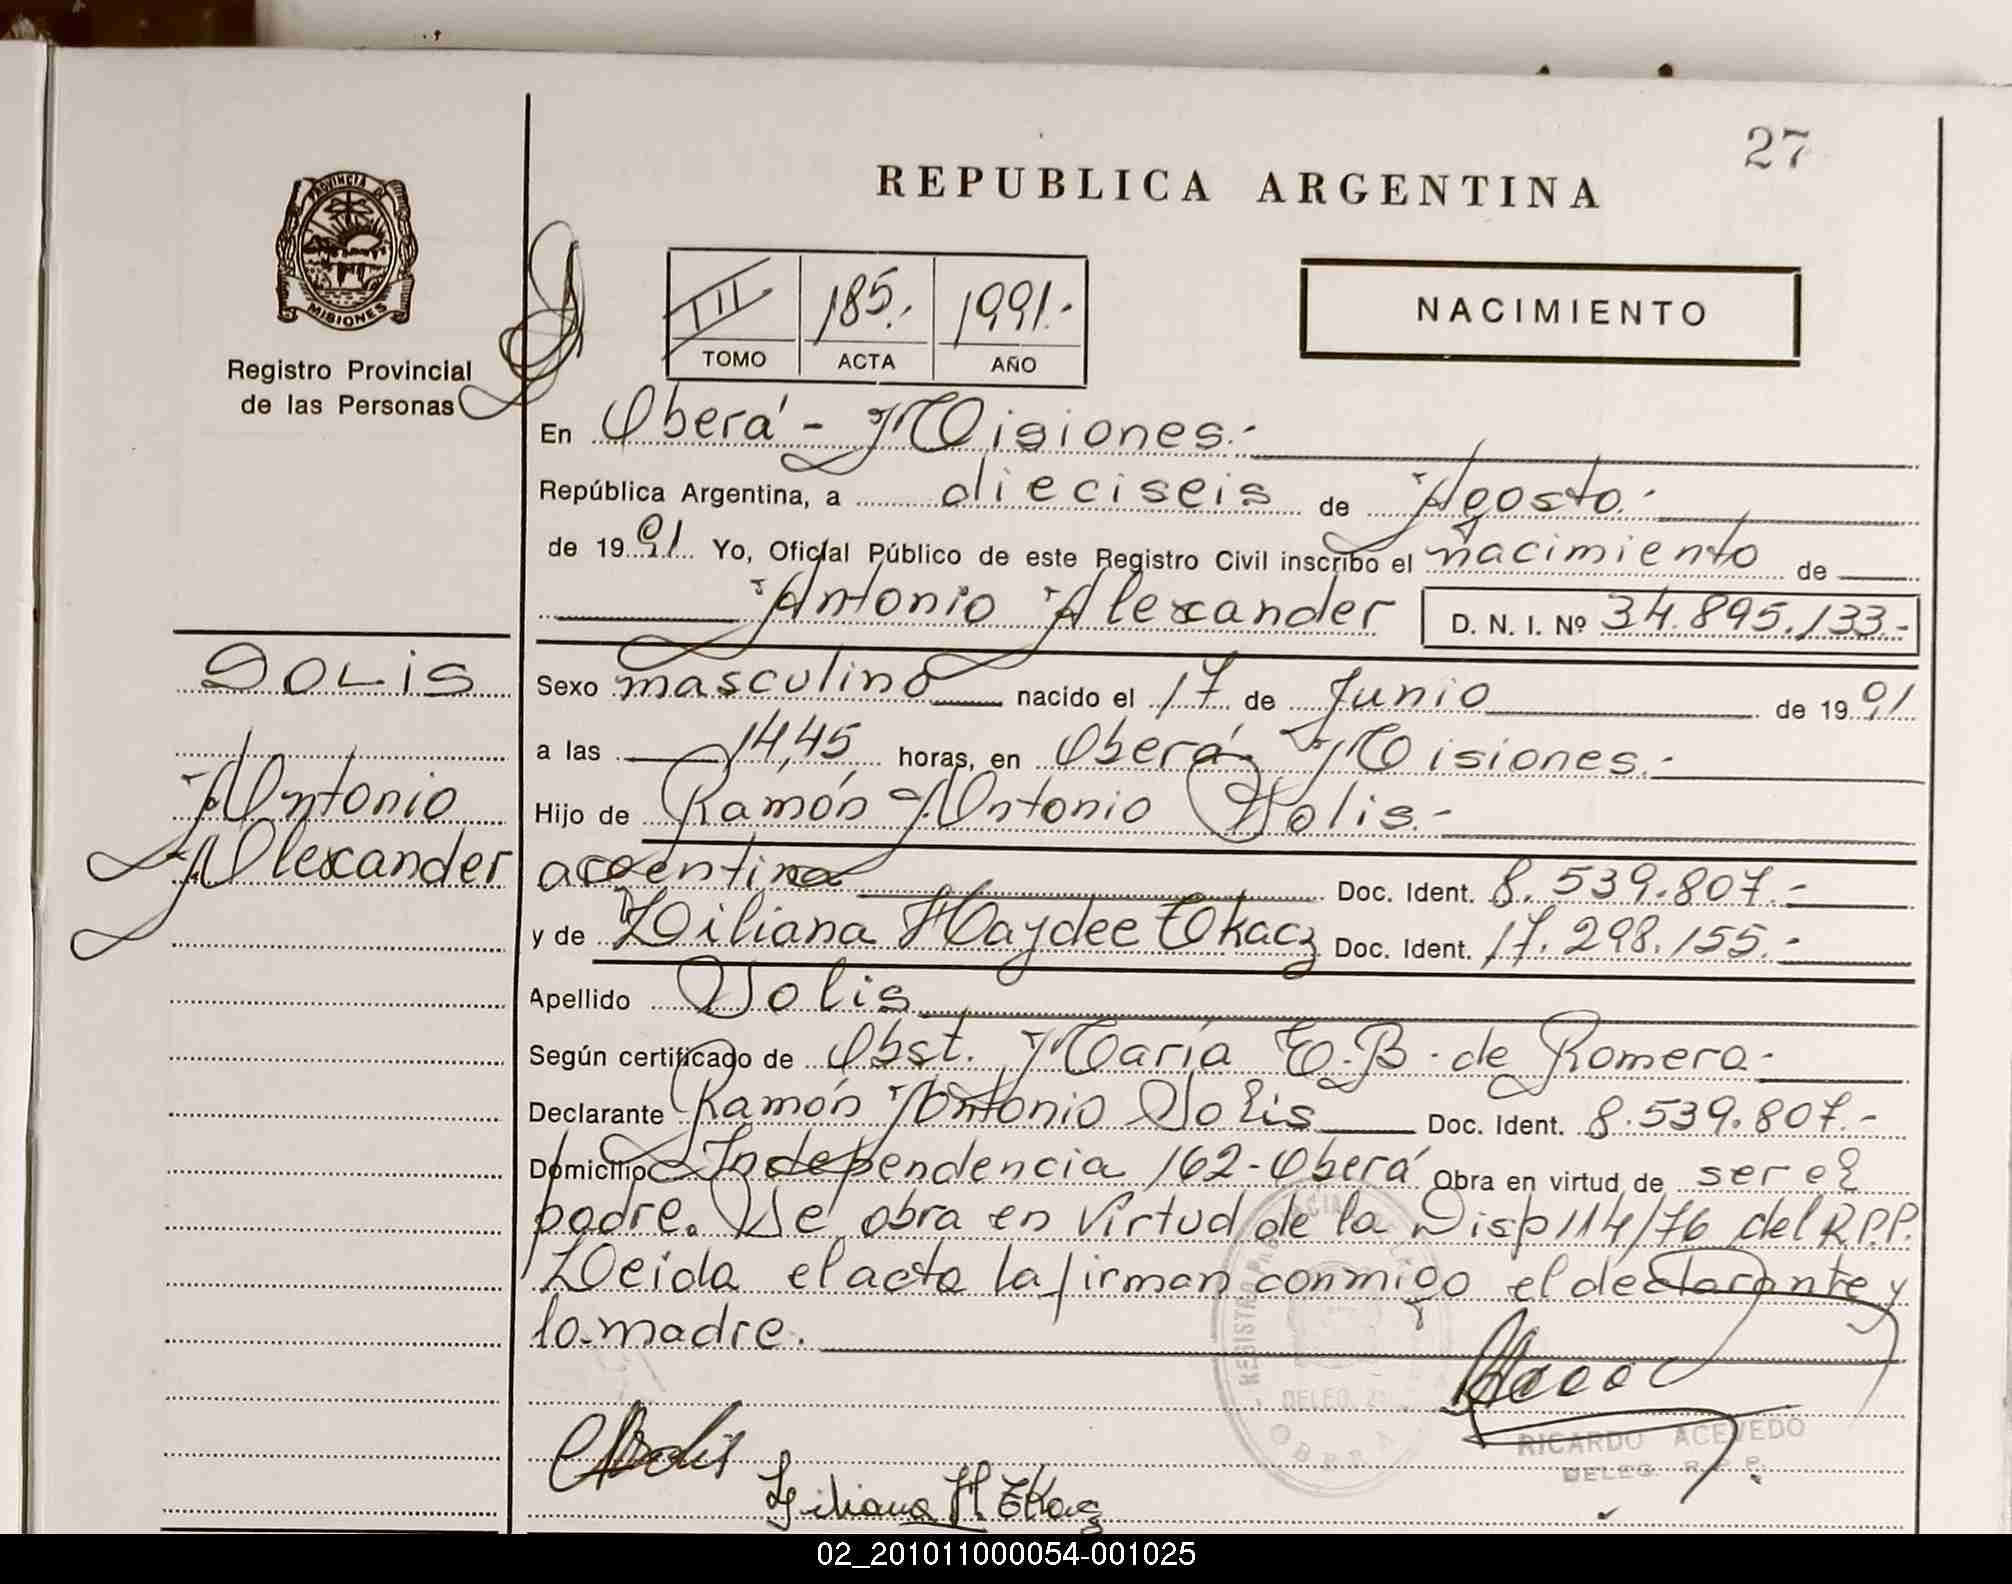 27
REPUBLICA ARGENTINA
PROVINCIA DE
MISIONES
Registro Provincial
de las Personas
III 185.- 1991.-
TOMO ACTA AÑO
NACIMIENTO
En Oberá - Misiones.-
República Argentina, a dieciseis de Agosto.-
de 1991 Yo, Oficial Público de este Registro Civil inscribo el nacimiento de
Antonio Alexander D. N. I. Nº 34.895.133.-
SOLIS
Antonio
Alexander
Sexo masculino nacido el 17 de Junio de 1991
a las 14,45 horas, en Oberá Misiones.-
Hijo de Ramón Antonio Solis.-
argentina Doc. Ident. 8.539.807.-
y de Liliana Haydee Tkacz Doc. Ident. 17.298.155.-
Apellido Solis
Según certificado de Obst. María E.B. de Romero-
Declarante Ramón Antonio Solis Doc. Ident. 8.539.807.-
Domicilio Independencia 162-Oberá Obra en virtud de ser el
padre. Se obra en virtud de la Disp 114/76 del R.P.P.
Leida el acta la firman conmigo el declarante y
la madre.
REGISTRO
DELEG.
OBERA
RICARDO ACEVEDO
DELEG. R.P.P.
Liliana H. Tkacz
02_201011000054-001025